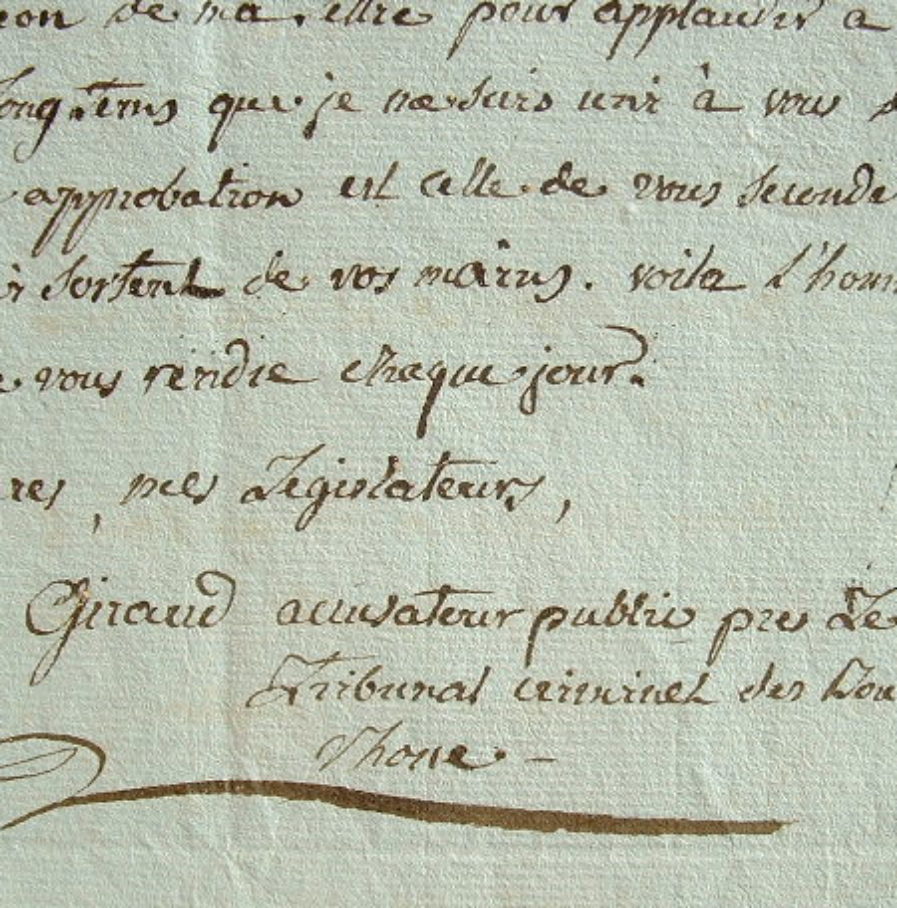 de ma lettre pour applaudir a
long-tems que je me suis unir à vous
approbation est celle de vous seconde
sortent de vos mains. voila l'hom
vous rendre chaque jour.
res, mes Législateurs,
Giraud accusateur public pres Le
Tribunal criminel des Bou
Rhone. -